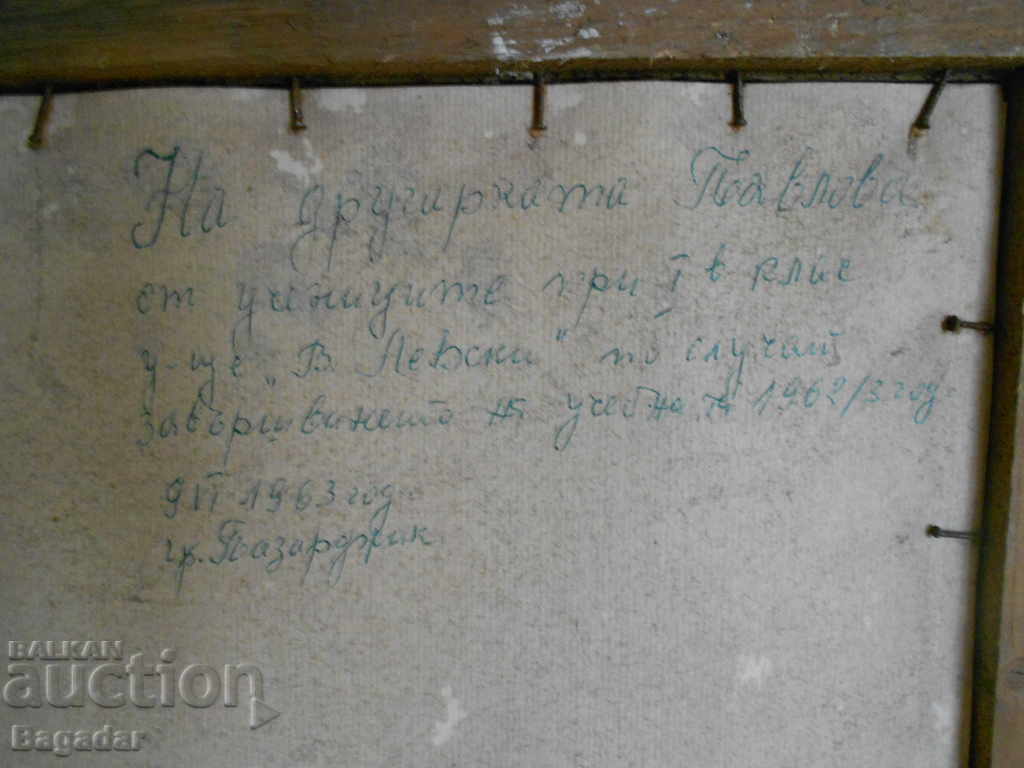 На другарката Павлова
от учениците при I в клас
у-ще „В. Левски" по случай
завършването на учебната 1962/3 год.
9 VI 1963 год.
гр. Пазарджик
BALKAN
auction
Bagadar